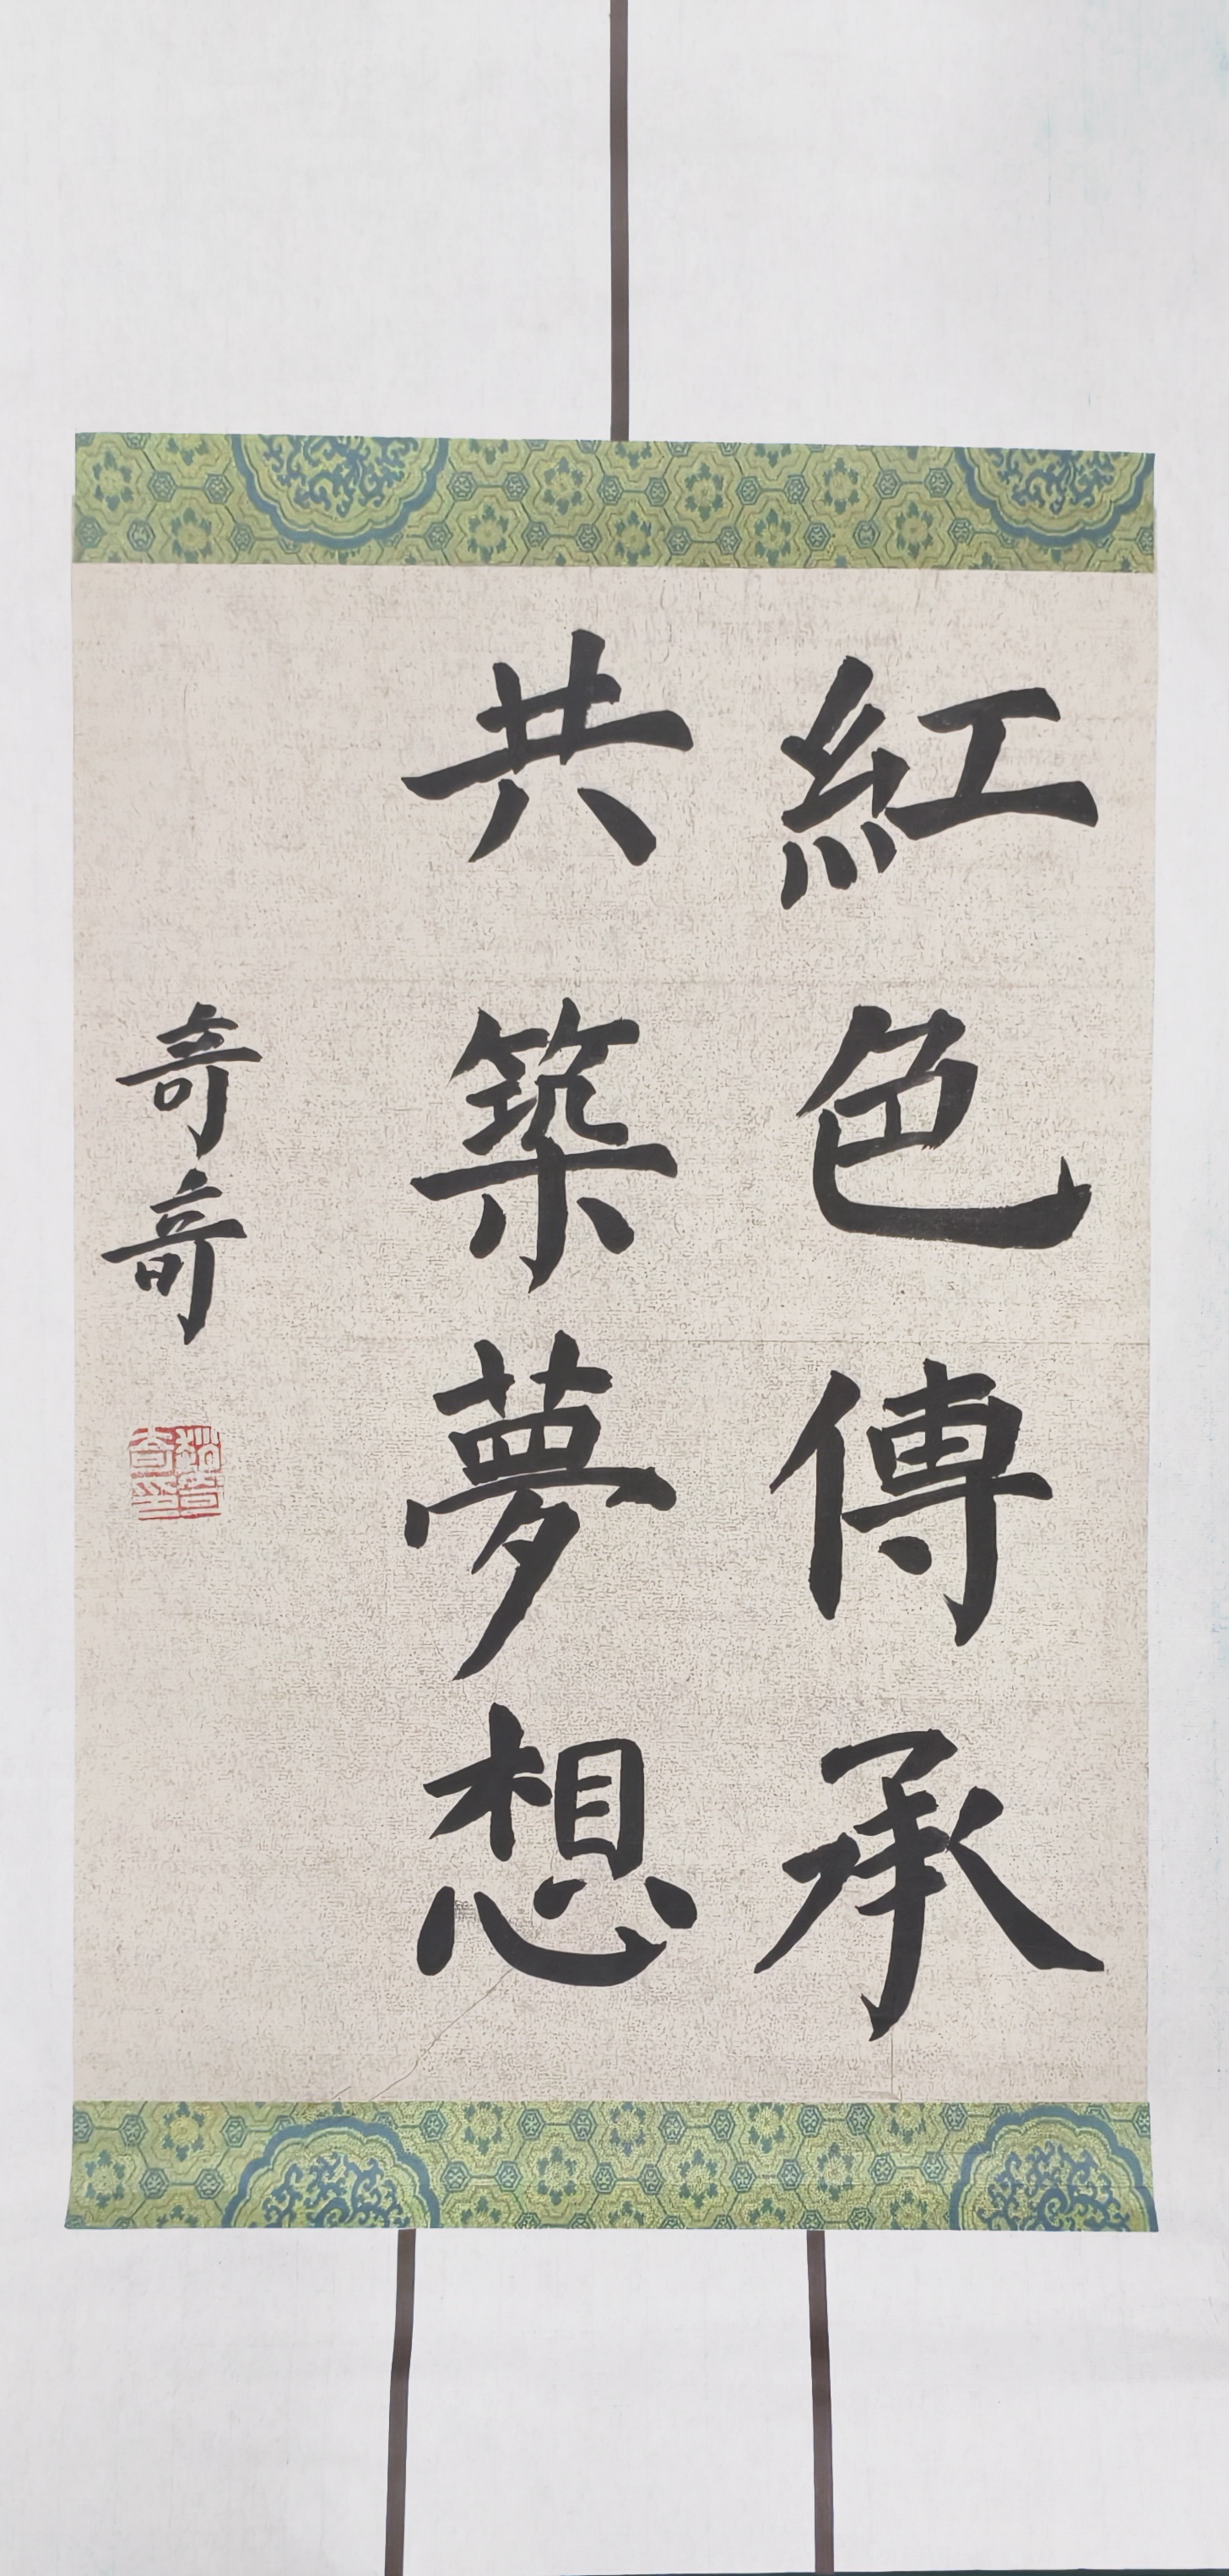 紅色傳承
共築夢想
奇奇